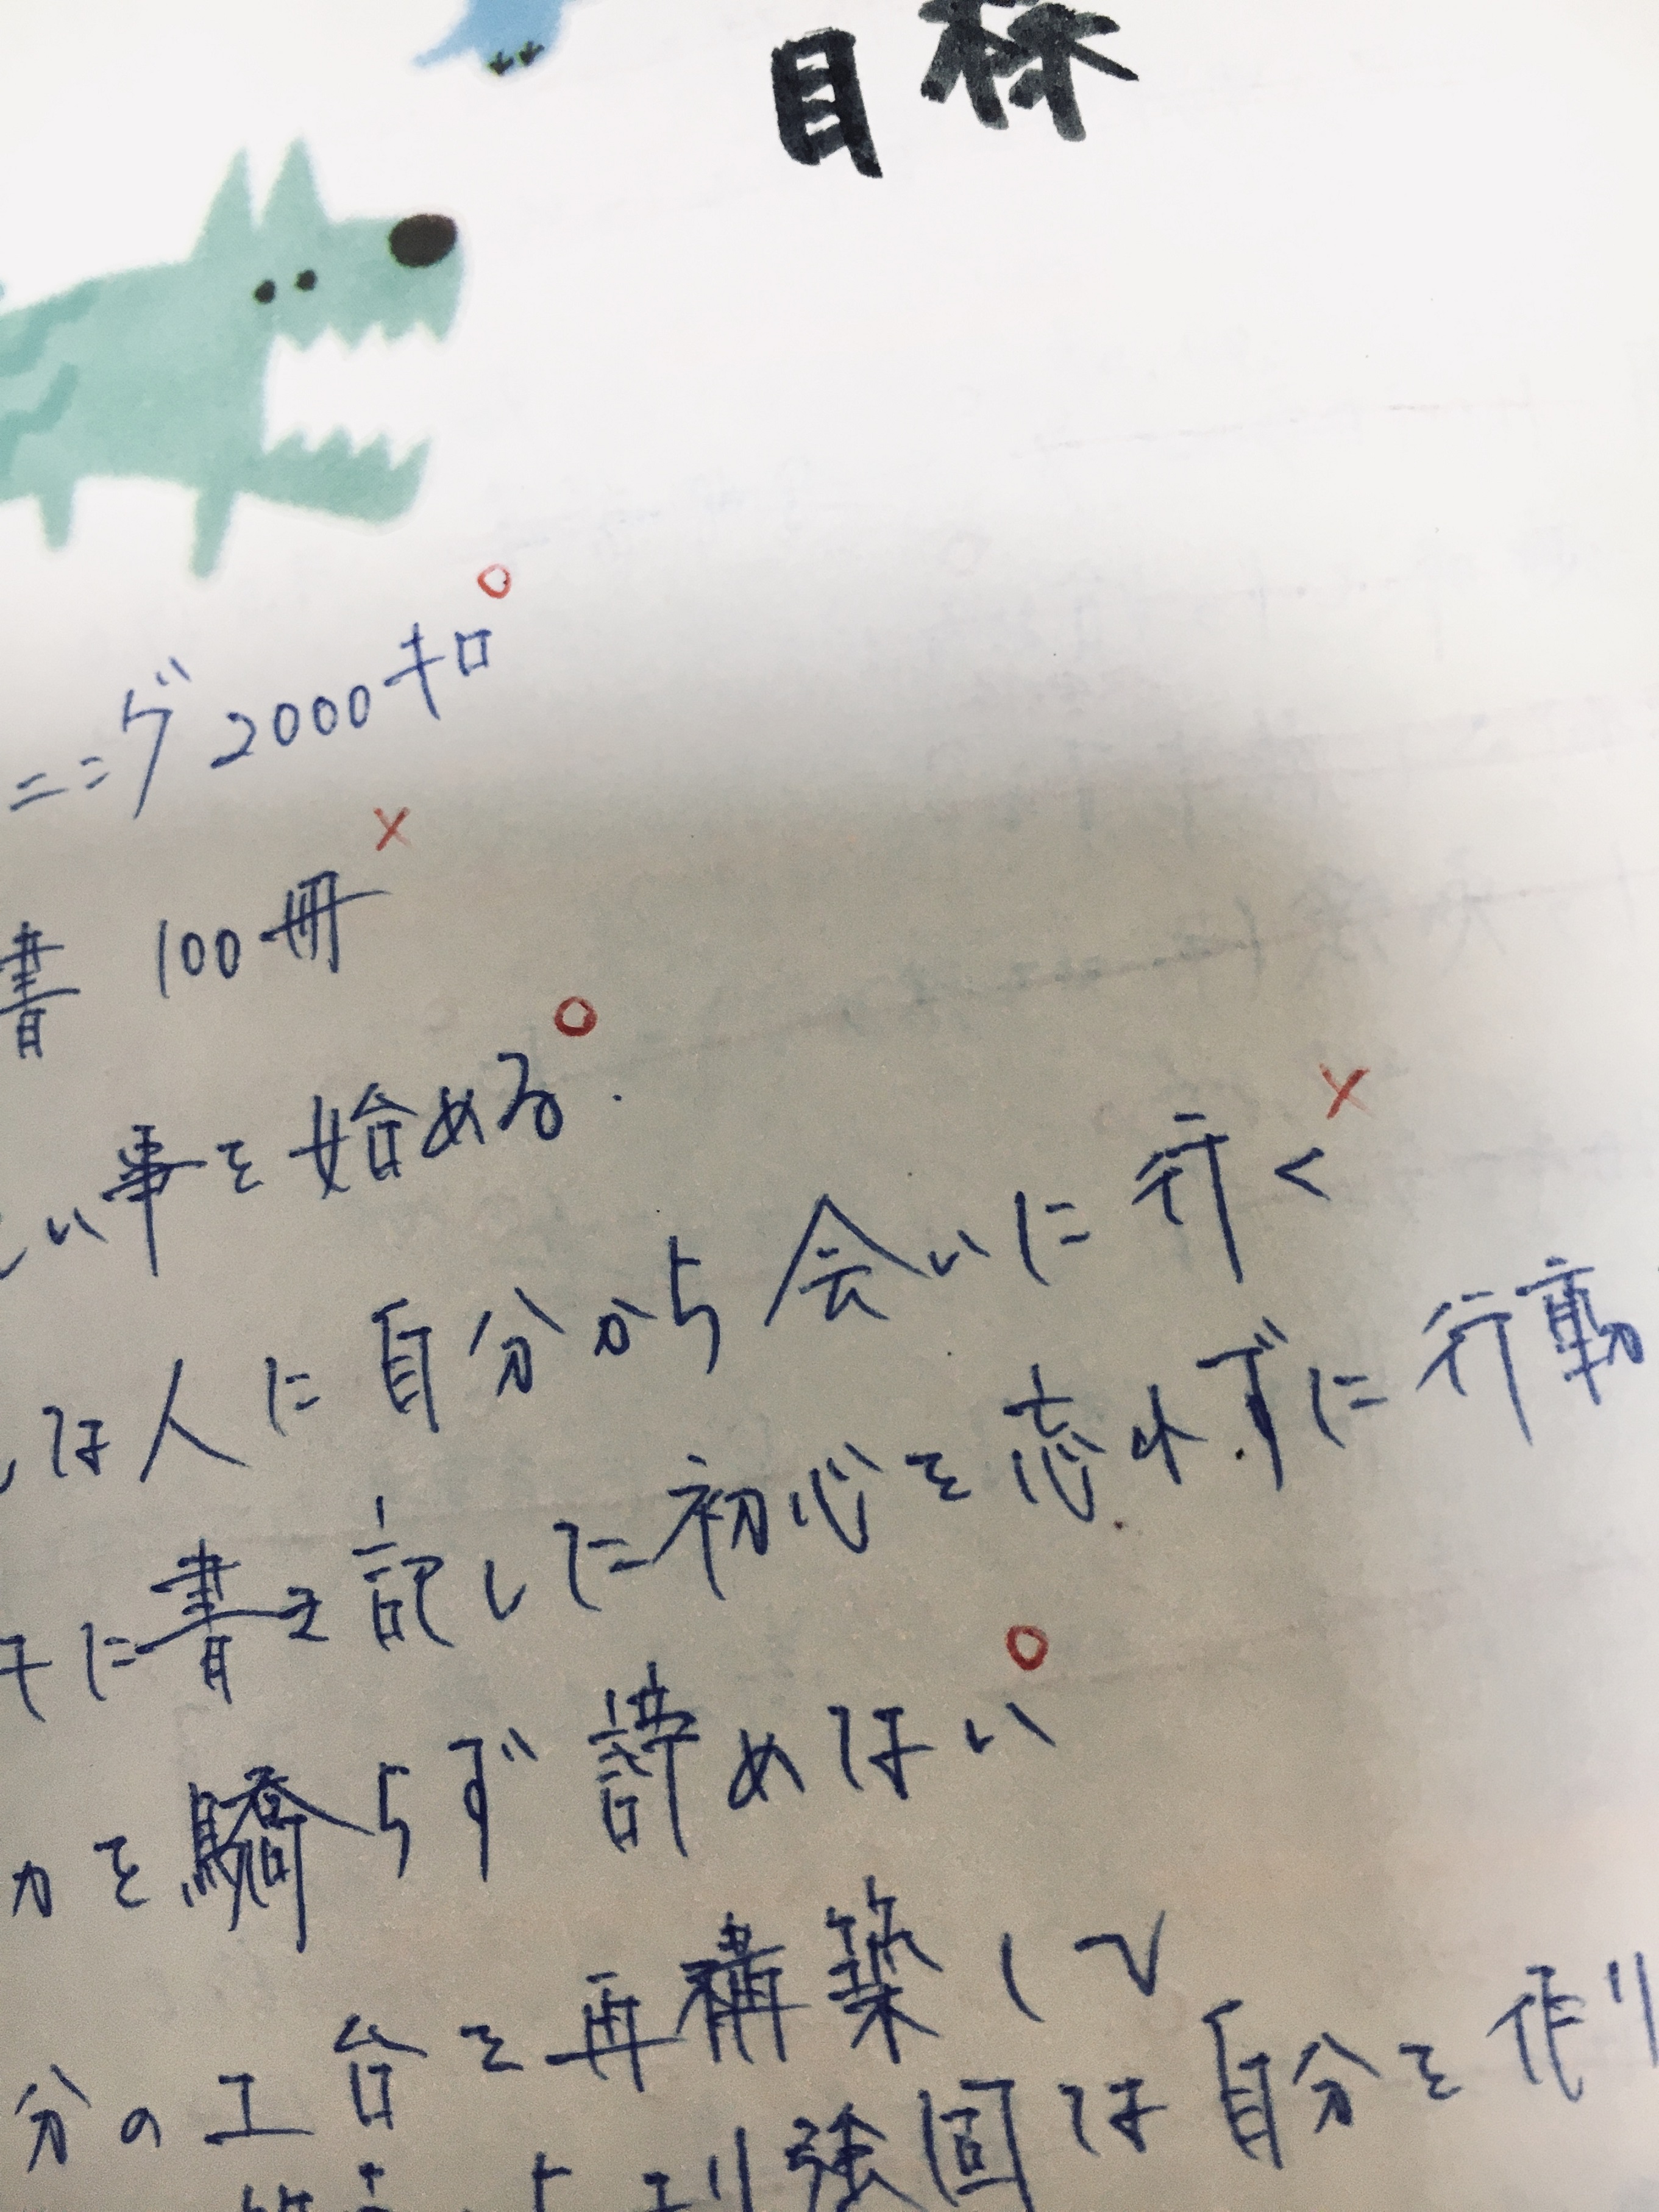 目標
ニング 2000キロ
書 100冊
い事を始める.
な人に自分から会いに行く
に書き記した初心を忘れずに行動
力を驕らず諦めない
分の土台を再構築して
より強固な自分を作り